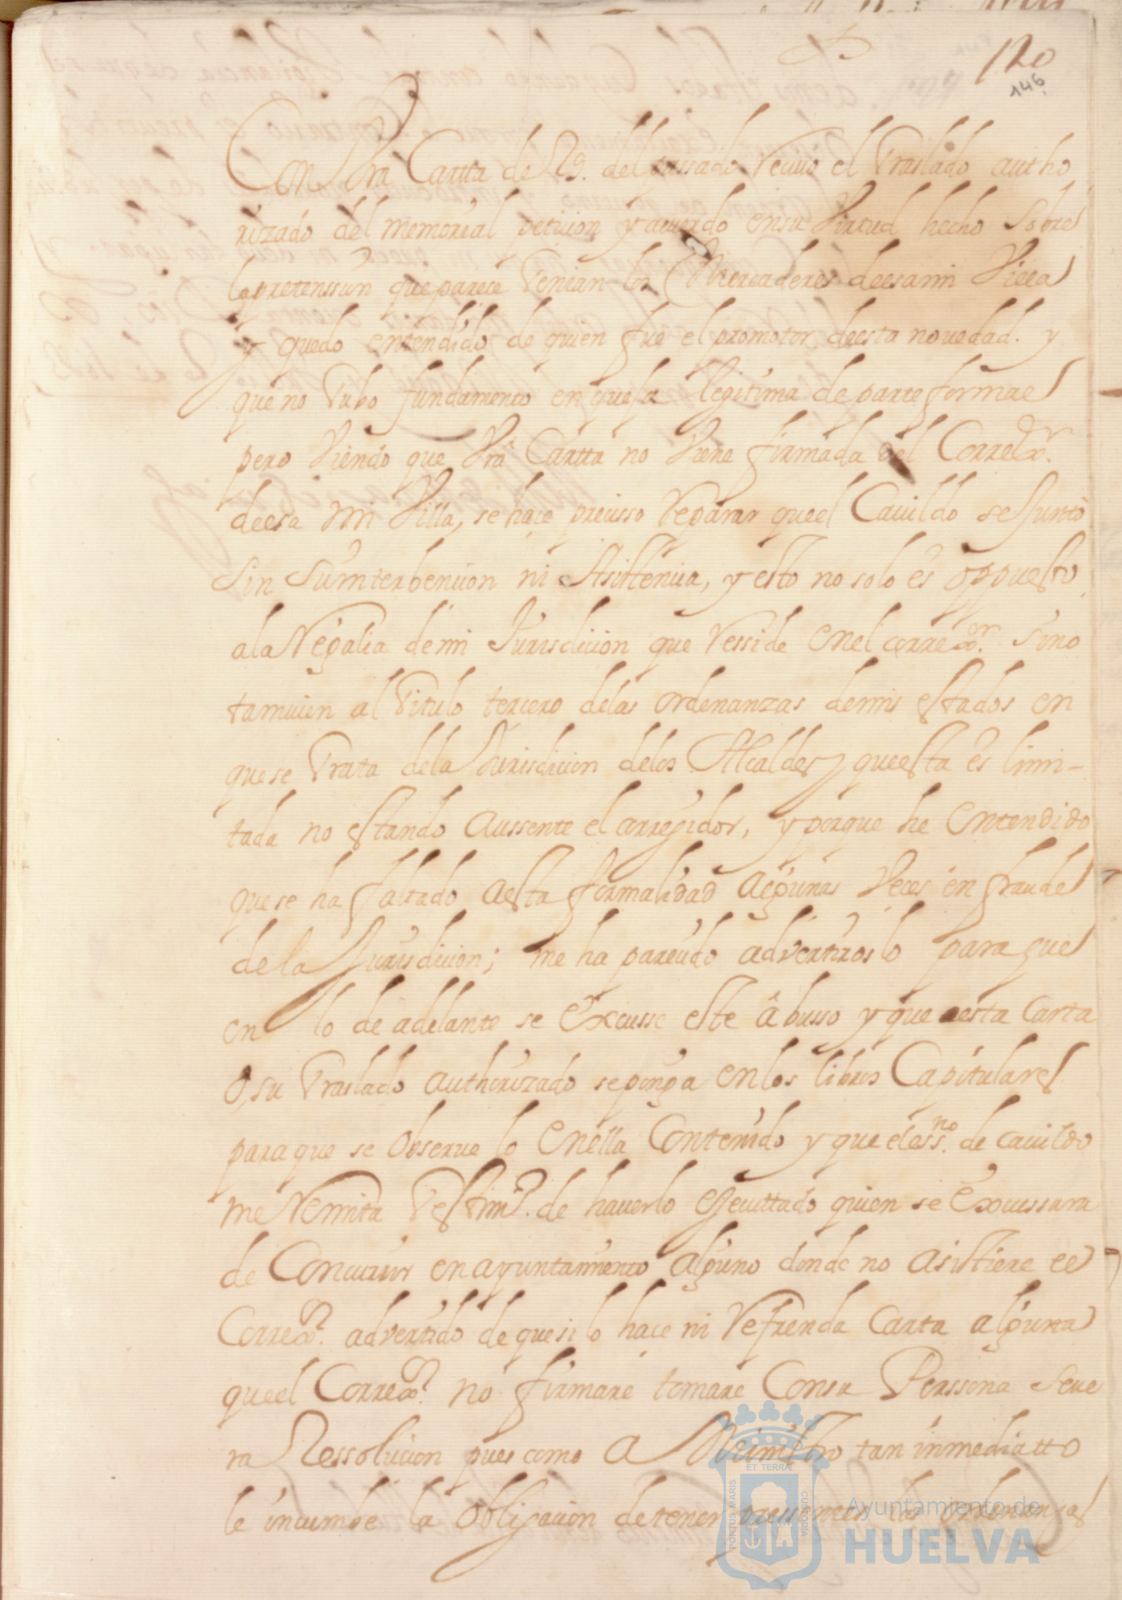 120
146
Con Vra Carta de 29. del passado recivo el traslado autho
rizado del memorial peticion y acuerdo en su Virtud hecho sobre
la pretenssion que parece tenian los Mercaderes de esa mi Villa
y quedo entendido de quien fue el promotor de esta novedad. y
que no tubo fundamento en que sea legitima de parte formal
pero viendo que Vra Cartta no viene firmada del Corregor.
de esa mi Villa, se hace precisso reparar que el Cavildo se Juntò
sin su interbencion ni Asistencia, y esto no solo es oppuesto
ala Regalia de mi Jurisdicion que resside en el corregor. sino
tamvien al titulo tercero delas ordenanzas de mis estados en
que se trata de la Jurisdicion delos Alcaldes, y que esta es limi-
tada no estando aussente el corregidor, y porque he entendido
que se ha faltado a esta formalidad algunas Veces en fraude
de la Jurisdicion; me ha parecido advertiroslo para que
en lo de adelante se Excusse este âbusso y que esta carta
O, su traslado authorizado se ponga en los libros Capitulares
para que se Observe lo en ella Contenido y que el essno. de cavildo
me Remita testimo. de haverlo ejecuttado quien se Excussara
de Concurrir en ayuntamiento alguno donde no asistiere el
Corregor. advertido de que si lo hace ni refrenda Carta alguna
que el Corregor. no firmare tomare Con su Perssona seve
ra Ressolucion pues como a Ministro tan inmediatto
le incumbe la Obligacion de tener pressentes las ordenanzas
Ayuntamiento de
HUELVA
PORTUS MARIS
ET TERRAE
CUSTODIA